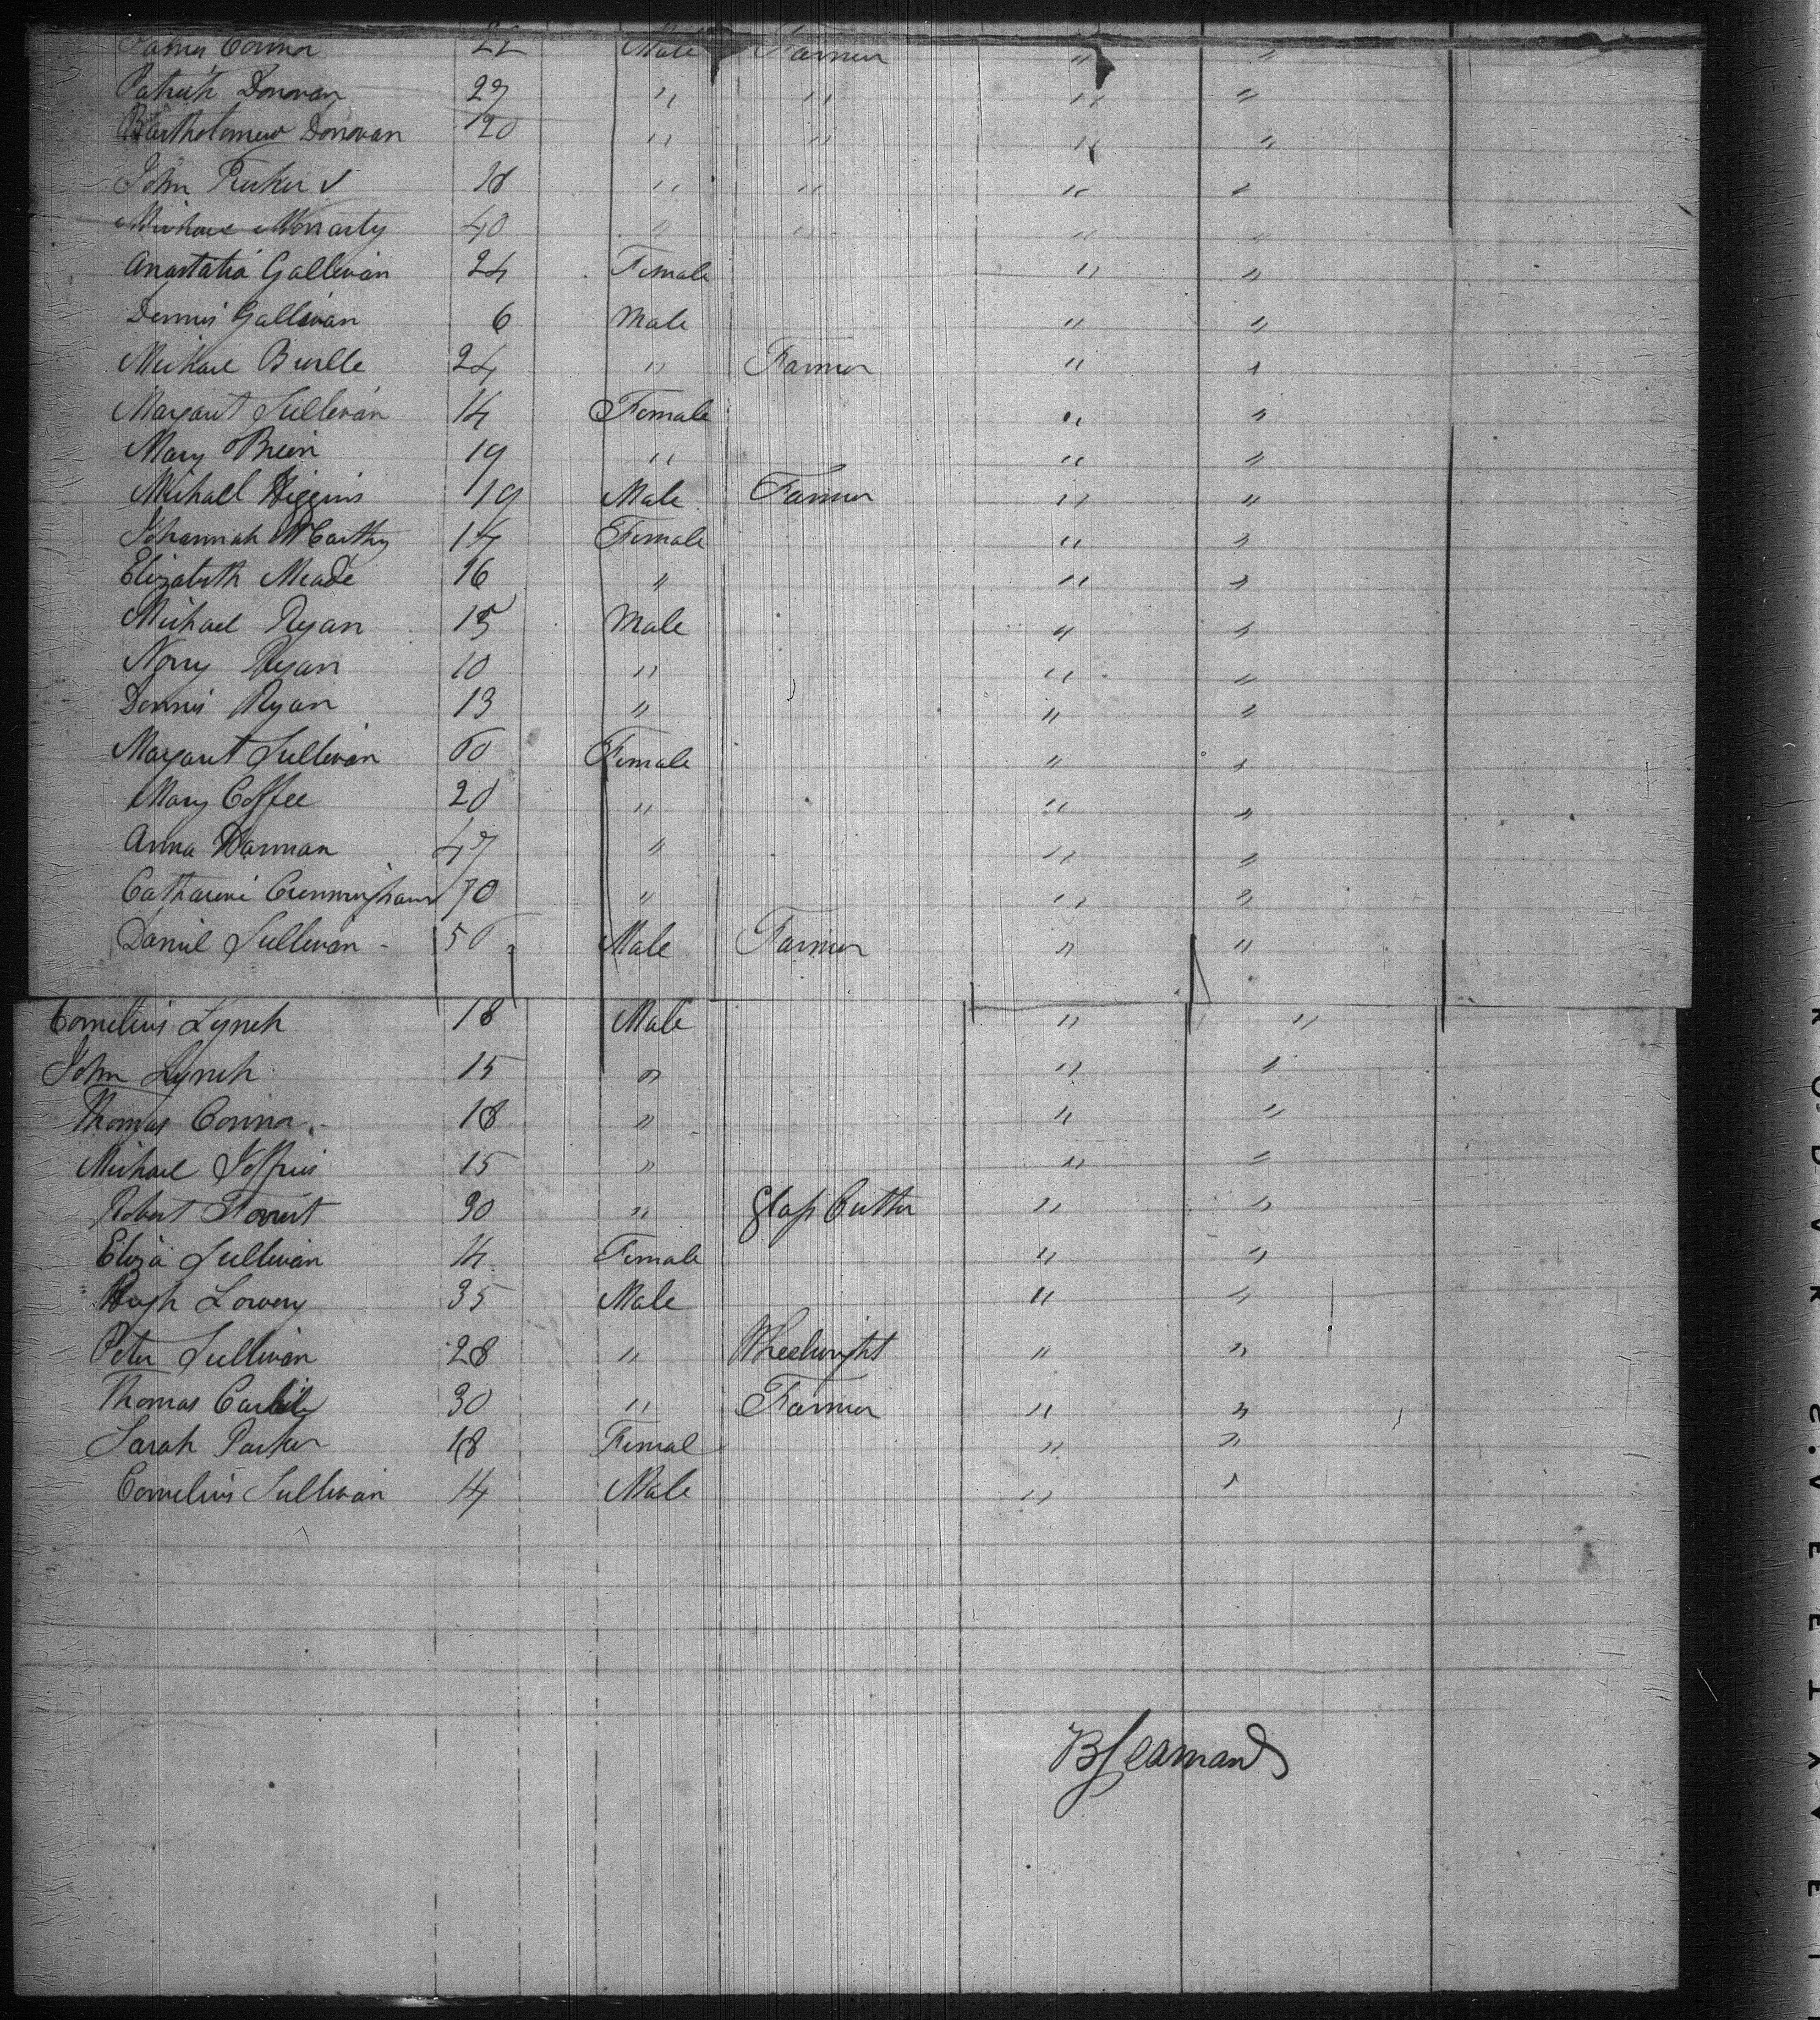 James Connor 22 Male Farmer " "
Patrick Donovan 27 " " " "
Bartholomew Donovan 20 " " " "
John Tucker ✓ 18 " " " "
Michael Moriarty 40 " " " "
Anastatia Gallivan 24 Female " "
Dennis Gallivan 6 Male " "
Michael 24 " Farmer " "
Margaret Sullivan 14 Female " "
Mary Brien 19 " " "
Michael Higgins 19 Male Farmer " "
Johannah McCarthy 14 Female " "
Elizabeth Meade 16 " " "
Michael Ryan 15 Male " "
Nory Ryan 10 " " "
Dennis Ryan 13 " " "
Margaret Sullivan 60 Female " "
Mary Coffee 20 " " "
Anna Harman 47 " " "
Catharine Cunningham 70 " " "
Daniel Sullivan 50 Male Farmer " "
Cornelius Lynch 18 Male " "
John Lynch 15 " " "
Thomas Connor 18 " " "
Michael 15 " " "
Robert Forrest 30 " Glass Cutter " "
Eliza Sullivan 14 Female " "
Hugh Lowery 35 Male " "
Peter Sullivan 28 " Wheelwright " "
Thomas 30 " Farmer " "
Sarah Parker 18 Femal " "
Cornelius Sullivan 14 Male " "
B Seaman